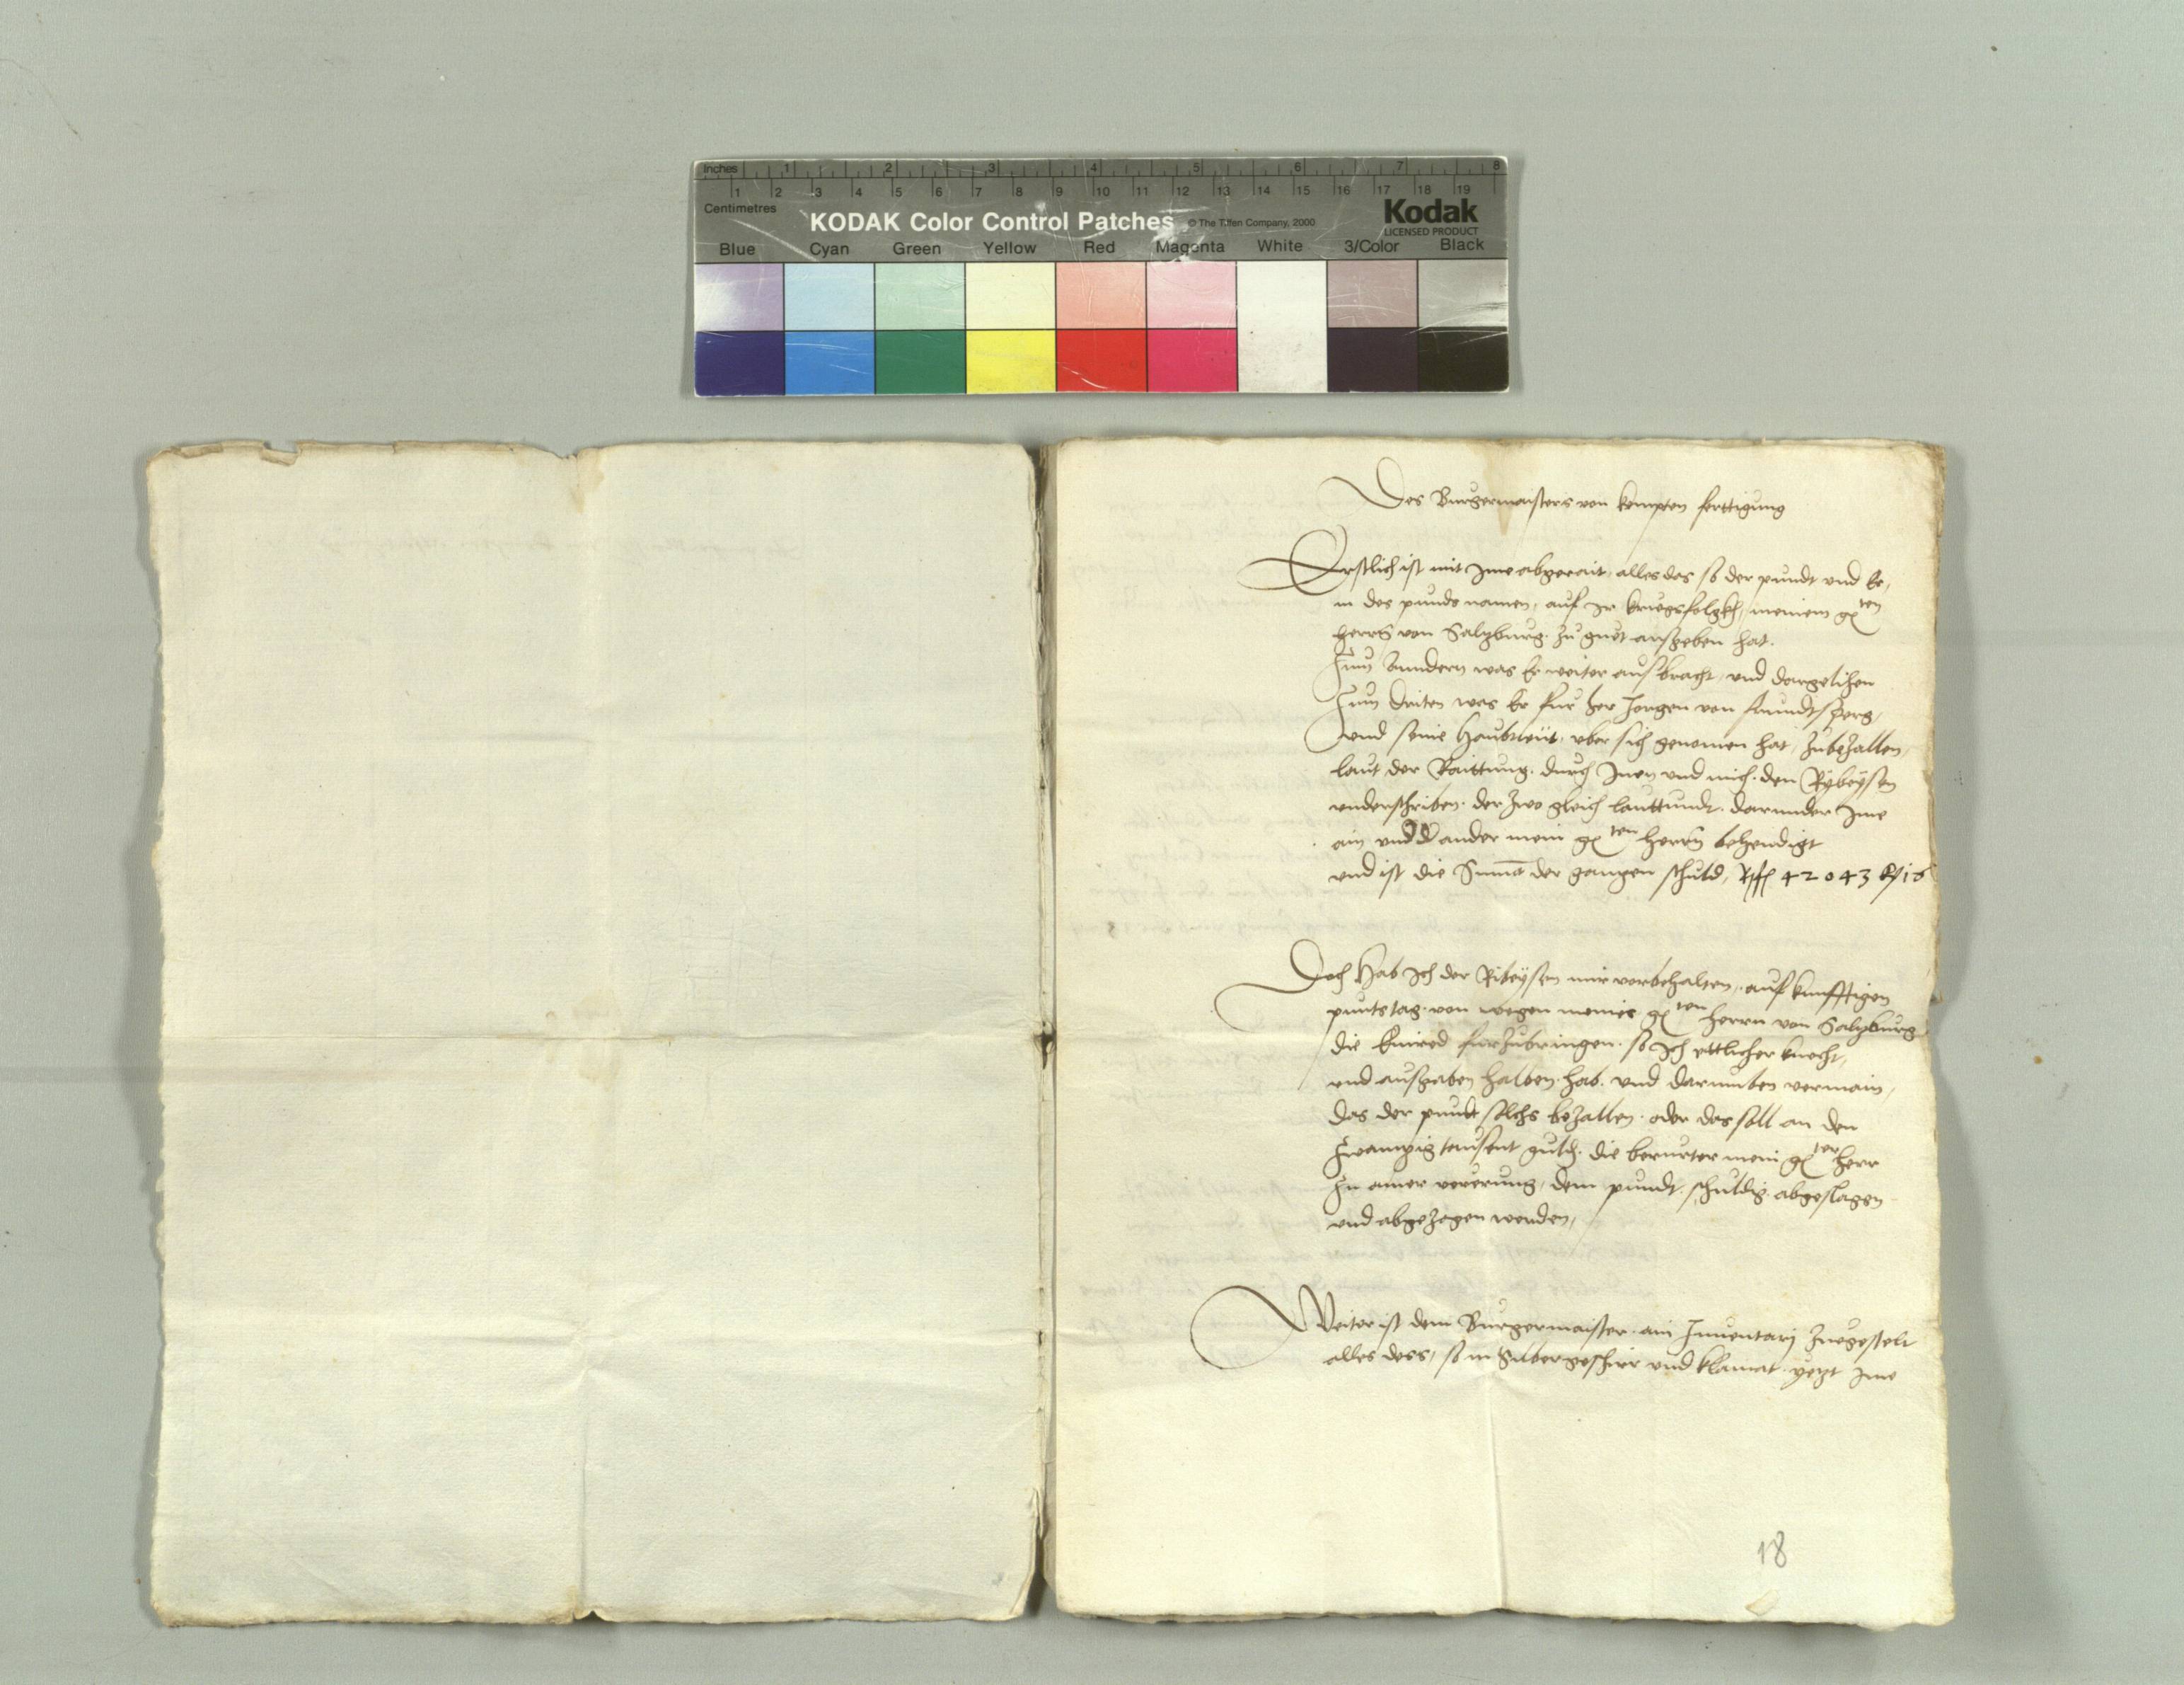 Inches 1 2 3 4 5 6 7 8
1 2 3 4 5 6 7 8 9 10 11 12 13 14 15 16 17 18 19
Centimetres
KODAK Color Control Patches © The Tiffen Company, 2000 Kodak
LICENSED PRODUCT
Blue Cyan Green Yellow Red Magenta White 3/Color Black
Des Burgermaisters von kempten ferttigung
Erstlich ist mit Ime abgerait, alles das so der pundt und Er,
in des punds namen, auf Ir kriegsfolgkh, meinem gten
herrn von Salzburg zu guet ausgeben hat.
Zum Anndern was Er weiter ausbracht, und dargelihen
Zum driten was Er fur her Jorgen von frundtsperg,
und seine Haubtleut, uber sich genomen hat, zubezallen,
laut der Raittung, durch Inen und mich, den Rybeysen
underschriben, der zwo gleich lauttundt, darunder Ime
ain und d ander mein gten herrn behendigt
und ist die Suma der ganzen schuld, 42043 16
Doch Hab Ich der Ribeysen mir vorbehalten, auf kunfftigen
puntstag, von wegen meines gten herrn von Salzburg
die Einred furzubringen, so Ich ettlicher knecht,
und ausgaben halben hab, und darumben vermain,
das der pundt solchs bezallen, oder das soll an den
Zwainzig tausent guld, die berurter mein gter herr
Zu ainer vererung, dem pundt, schuldig, abgeslagen
und abgezogen werden,
Weiter ist dem Burgermaister ain Inventary zuegestelt
alles dess, so in Silbergeschirr und klainat yezt Ime
18